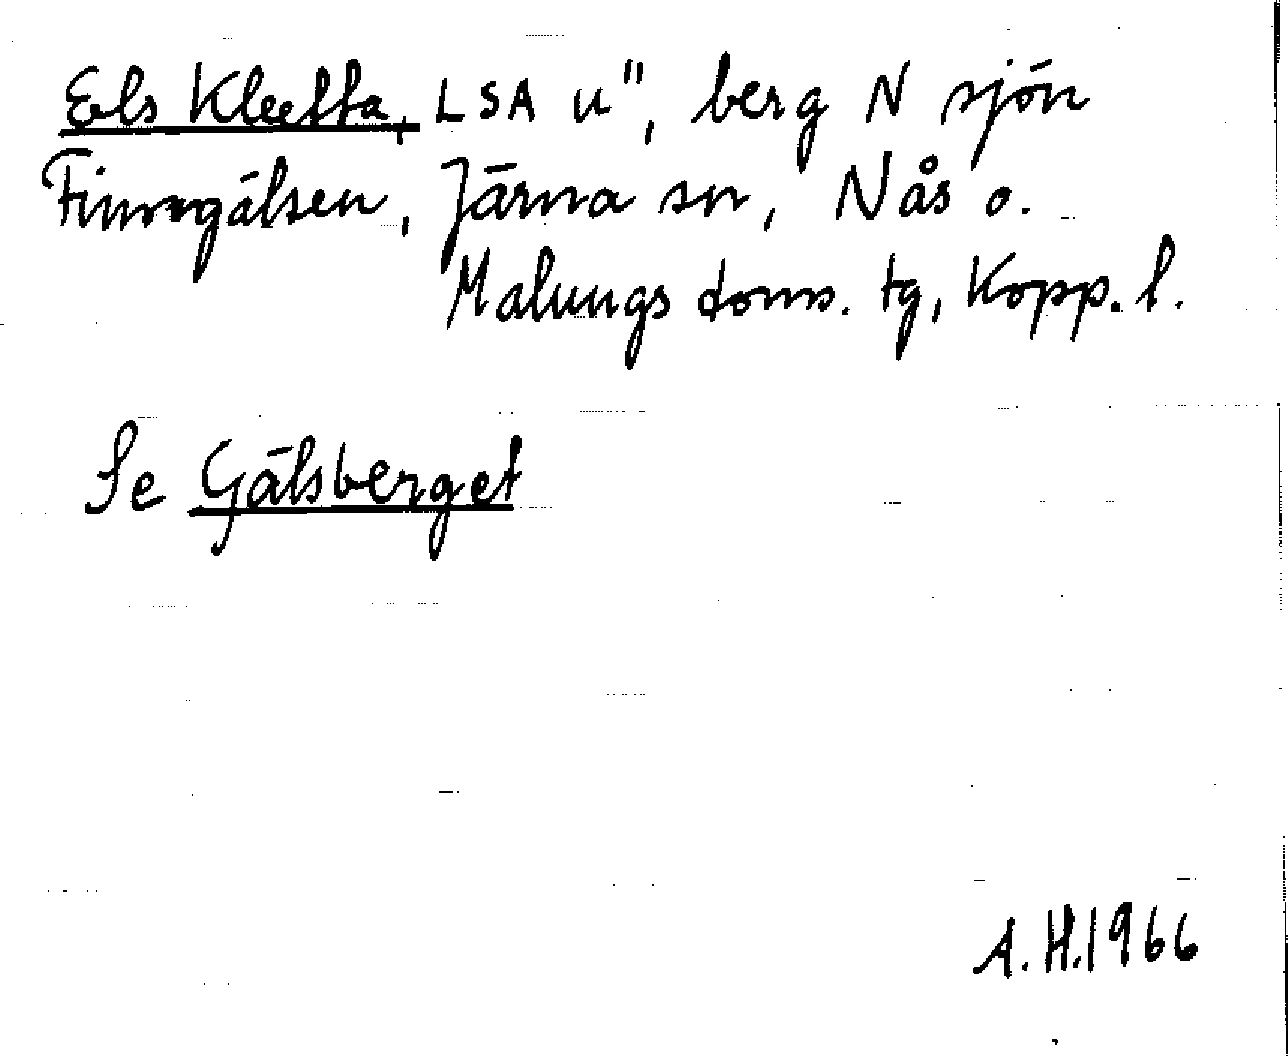 Els Kleffa, LSA u", berg N sjön
Finngälsen, Järna sn, Nås o.
Malungs doms. tg, Kopp. l.
Se Gälsberget
A.H.1966